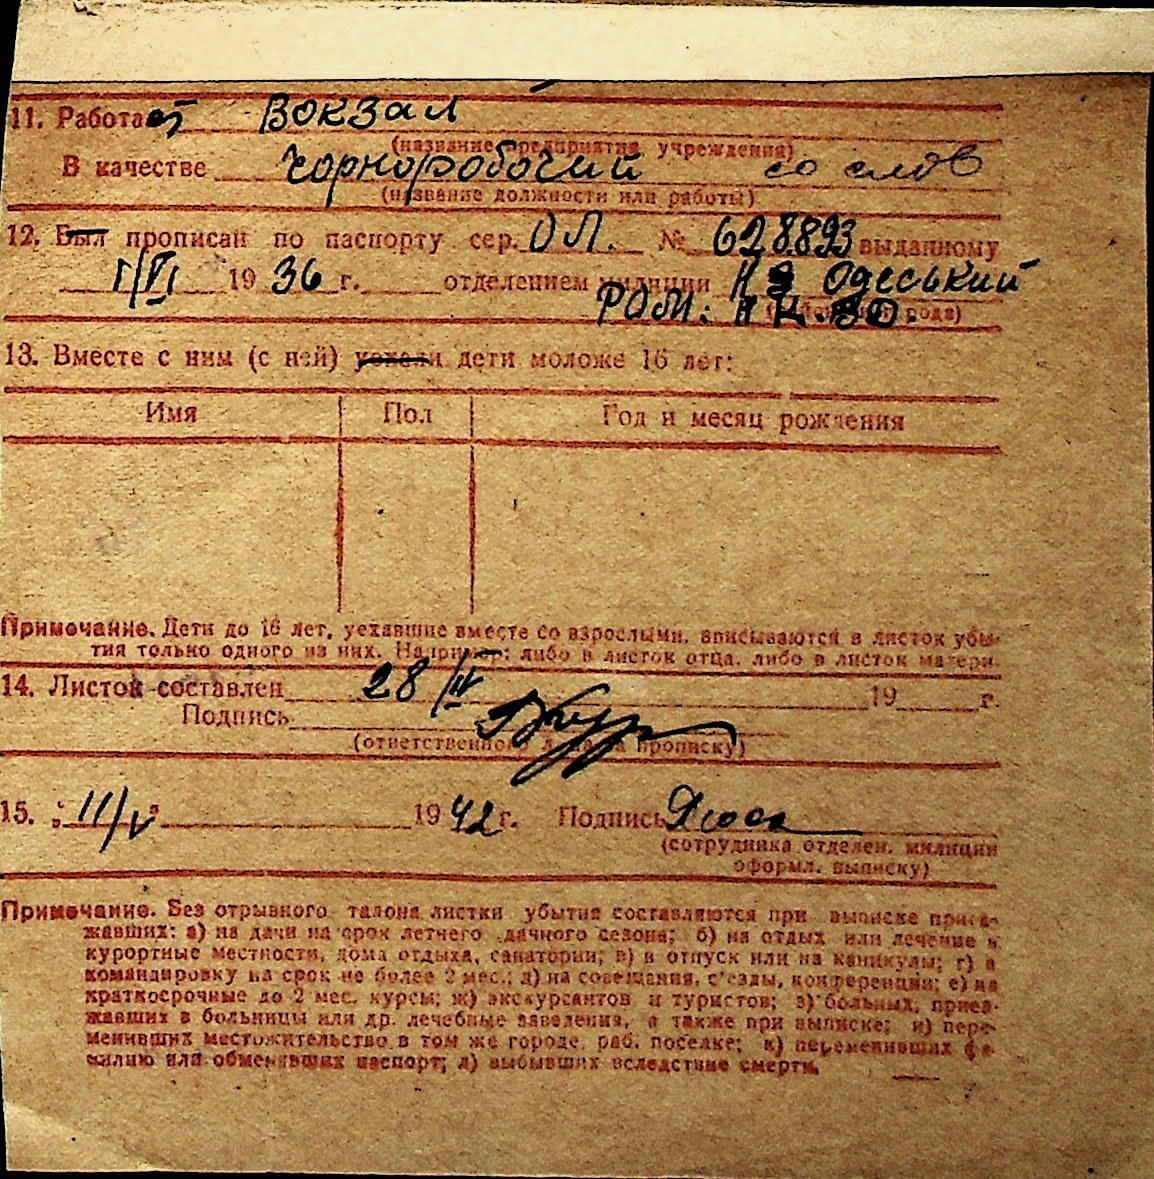 11. Работает Вокзал
(название предприятия учреждения)
В качестве чорноробочий со слов
(название должности или работы)
12. Был прописан по паспорту сер. ОЛ. № 628893 выданному
1/VI 1936 г. отделением милиции Одеський
РОМ.
13. Вместе с ним (с ней) уехали дети моложе 16 лет:
Имя Пол Год и месяц рождения
Примечание. Дети до 16 лет, уехавшие вместе со взрослыми, вписываются в листок убы-
тия только одного из них. Например: либо в листок отца, либо в листок матери.
14. Листок составлен 28/IV 19 г.
Подпись
(ответственного лица за прописку)
15. „11/V" 1942 г. Подпись
(сотрудника отделен. милиции
оформл. выписку)
Примечание. Без отрывного талона листки убытия составляются при выписке приез-
жавших: а) на дачи на срок летнего дачного сезона; б) на отдых или лечение в
курортные местности, дома отдыха, санатории; в) в отпуск или на каникулы; г) в
командировку на срок не более 2 мес.; д) на совещания, с'езды, конференции; е) на
краткосрочные до 2 мес. курсы; ж) экскурсантов и туристов; з) больных, приез-
жавших в больницы или др. лечебные заведения, а также при выписке; и) пере-
менивших местожительство в том же городе, раб. поселке; к) переменивших фа-
милию или обменявших паспорт; л) выбывших вследствие смерти.